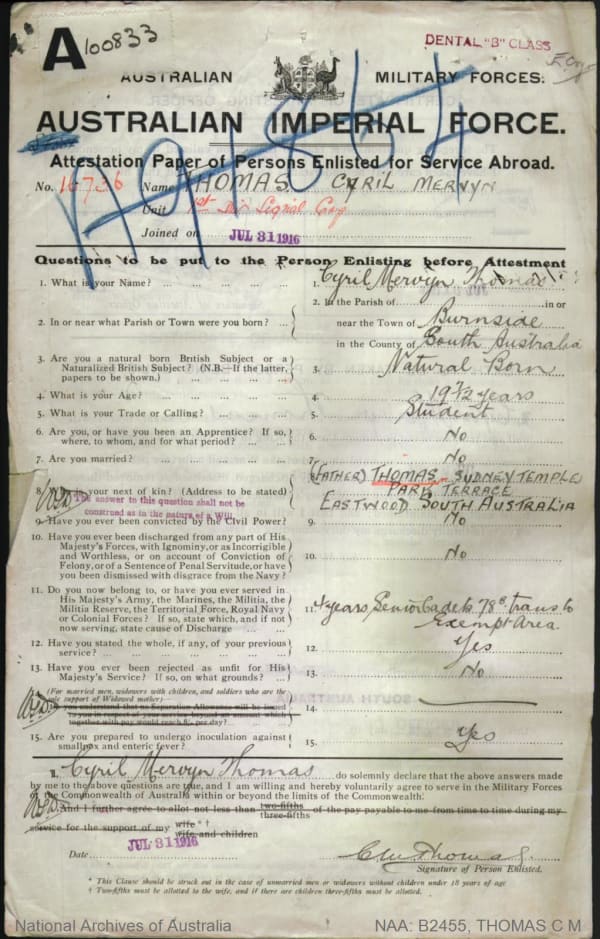 A 100833
DENTAL "B" CLASS
AUSTRALIAN MILITARY FORCES.
AUSTRALIAN IMPERIAL FORCE.
Attestation Paper of Persons Enlisted for Service Abroad.
No. 16736 Name THOMAS CYRIL MERVYN
Unit 1st Div Signal Coy
Joined on JUL 31 1916
Questions to be put to the Person Enlisting before Attestment
1. What is your Name? ... 1. Cyril Mervyn Thomas
2. In or near what Parish or Town were you born? ... 2. In the Parish of in or
near the Town of Burnside
in the County of South Australia
3. Are you a natural born British Subject or a
Naturalized British Subject? (N.B.—If the latter,
papers to be shown.) 3. Natural Born
4. What is your Age? 4. 19 1/2 years
5. What is your Trade or Calling? 5. Student
6. Are you, or have you been an Apprentice? If so,
where, to whom, and for what period? 6. No
7. Are you married? 7. No
8. is your next of kin? (Address to be stated) (FATHER) THOMAS SYDNEY TEMPLE
PARK TERRACE
EASTWOOD SOUTH AUSTRALIA
The answer to this question shall not be
construed as in the nature of a Will
9. Have you ever been convicted by the Civil Power? 9. No
10. Have you ever been discharged from any part of His
Majesty's Forces, with Ignominy, or as Incorrigible
and Worthless, or on account of Conviction of
Felony, or of a Sentence of Penal Servitude, or have
you been dismissed with disgrace from the Navy? 10. No
11. Do you now belong to, or have you ever served in
His Majesty's Army, the Marines, the Militia, the
Militia Reserve, the Territorial Force, Royal Navy
or Colonial Forces? If so, state which, and if not
now serving, state cause of Discharge 11. 4 years Senior Cadets 78B trans to
Exempt Area
12. Have you stated the whole, if any, of your previous
service? 12. Yes
13. Have you ever been rejected as unfit for His
Majesty's Service? If so, on what grounds? 13. No
(For married men, widowers with children, and soldiers who are the
sole support of Widowed mother)
you understand that no Separation Allowance will be issued
to you in respect of your
together with pay would per day? 14.
15. Are you prepared to undergo inoculation against
smallpox and enteric fever? 15. Yes
I, Cyril Mervyn Thomas do solemnly declare that the above answers made
by me to the above questions are true, and I am willing and hereby voluntarily agree to serve in the Military Forces
of the Commonwealth of Australia within or beyond the limits of the Commonwealth.
And I further agree to allot not less than two-fifths three-fifths of the pay payable to me from time to time during my
service for the support of my wife* † wife and children
Date JUL 31 1916 C M Thomas
Signature of Person Enlisted.
* This Clause should be struck out in the case of unmarried men or widowers without children under 18 years of age
† Two-fifths must be allotted to the wife, and if there are children three-fifths must be allotted.
National Archives of Australia NAA: B2455, THOMAS C M